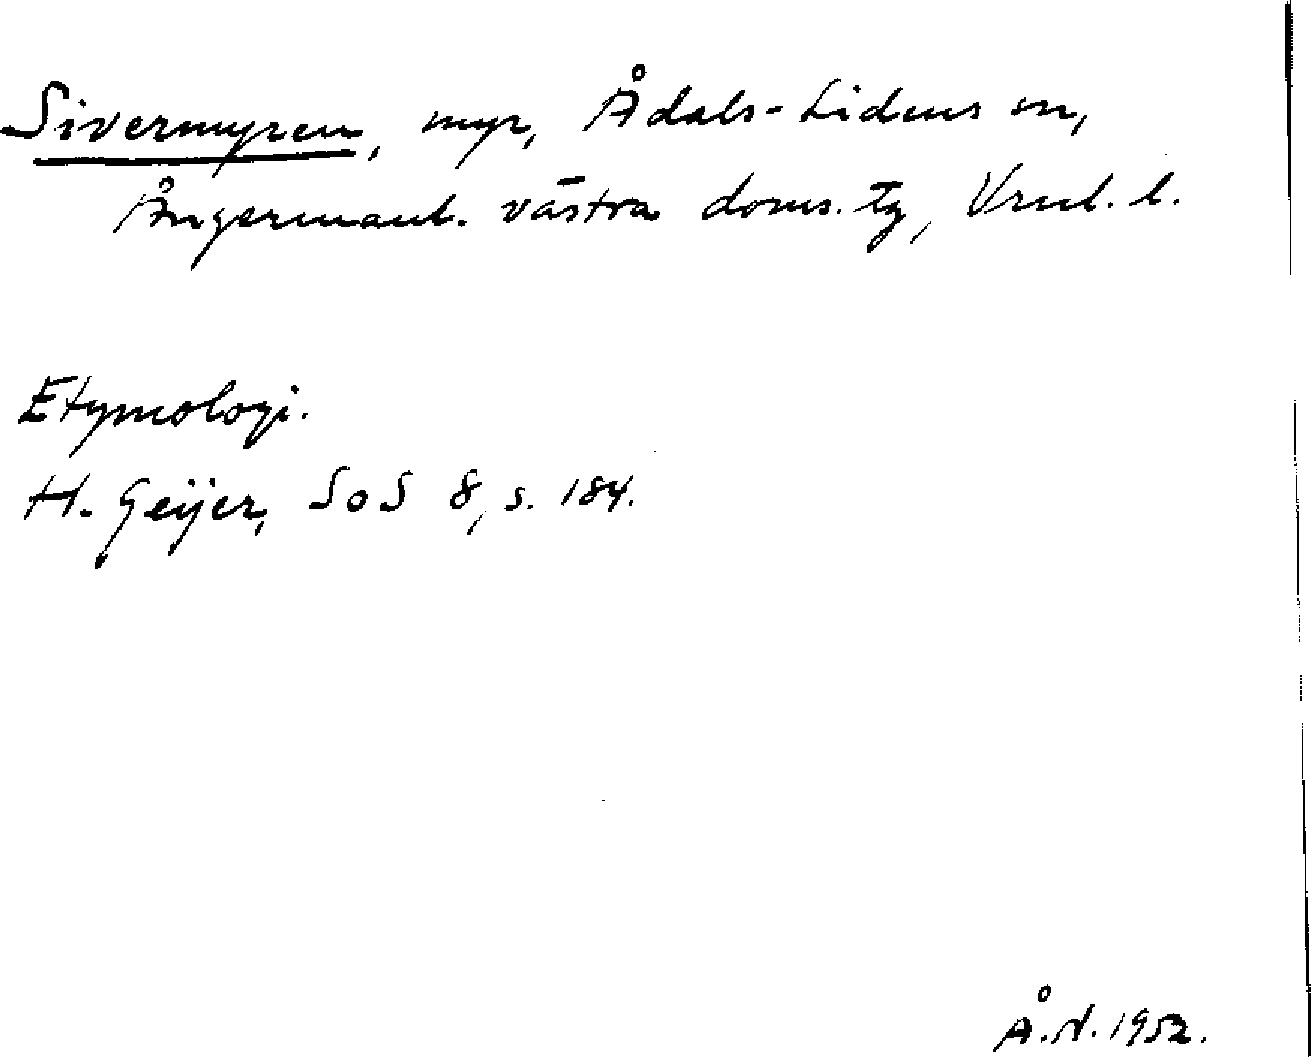 Sivermyren, myr, Ådals-Lidens sn,
Ångermanl. västra doms. tg, Vrnl. l.
Etymologi.
H. Geijer, SoS 8, s. 184.
Å.N. 1952.